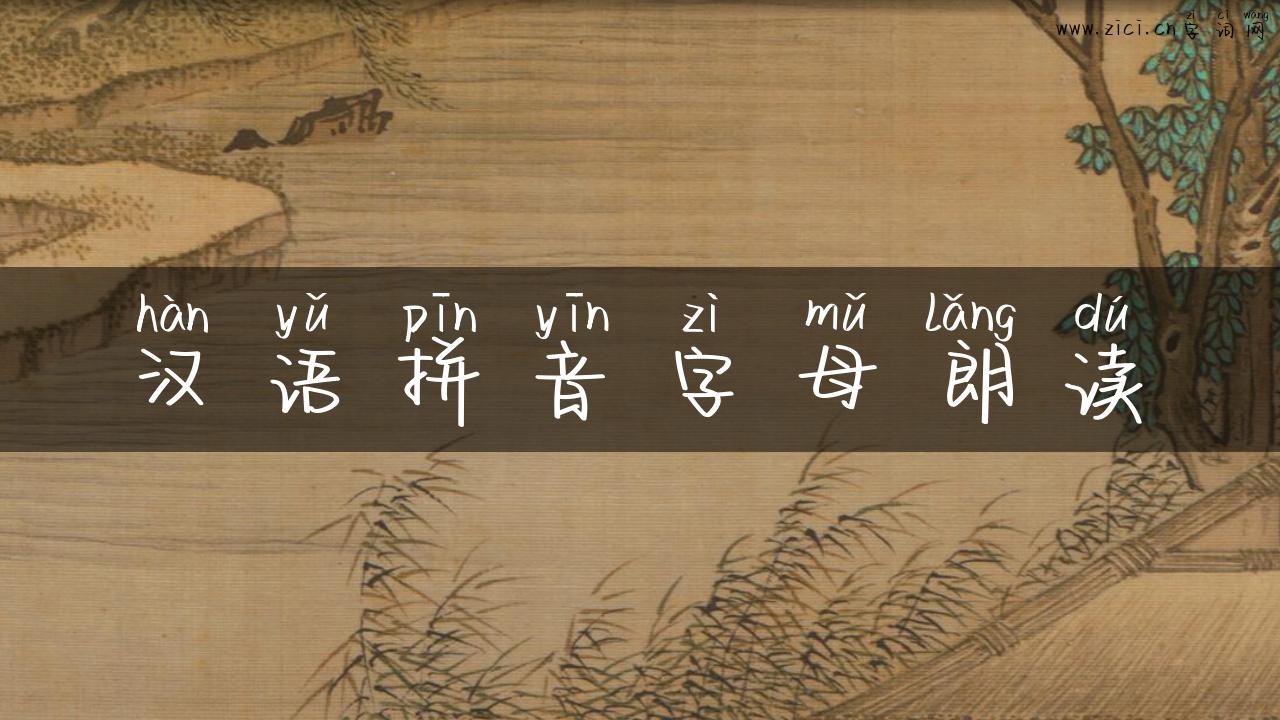 zì cí wǎng
www.zici.cn字词网
hàn yǔ pīn yīn zì mǔ lǎng dú
汉语拼音字母朗读